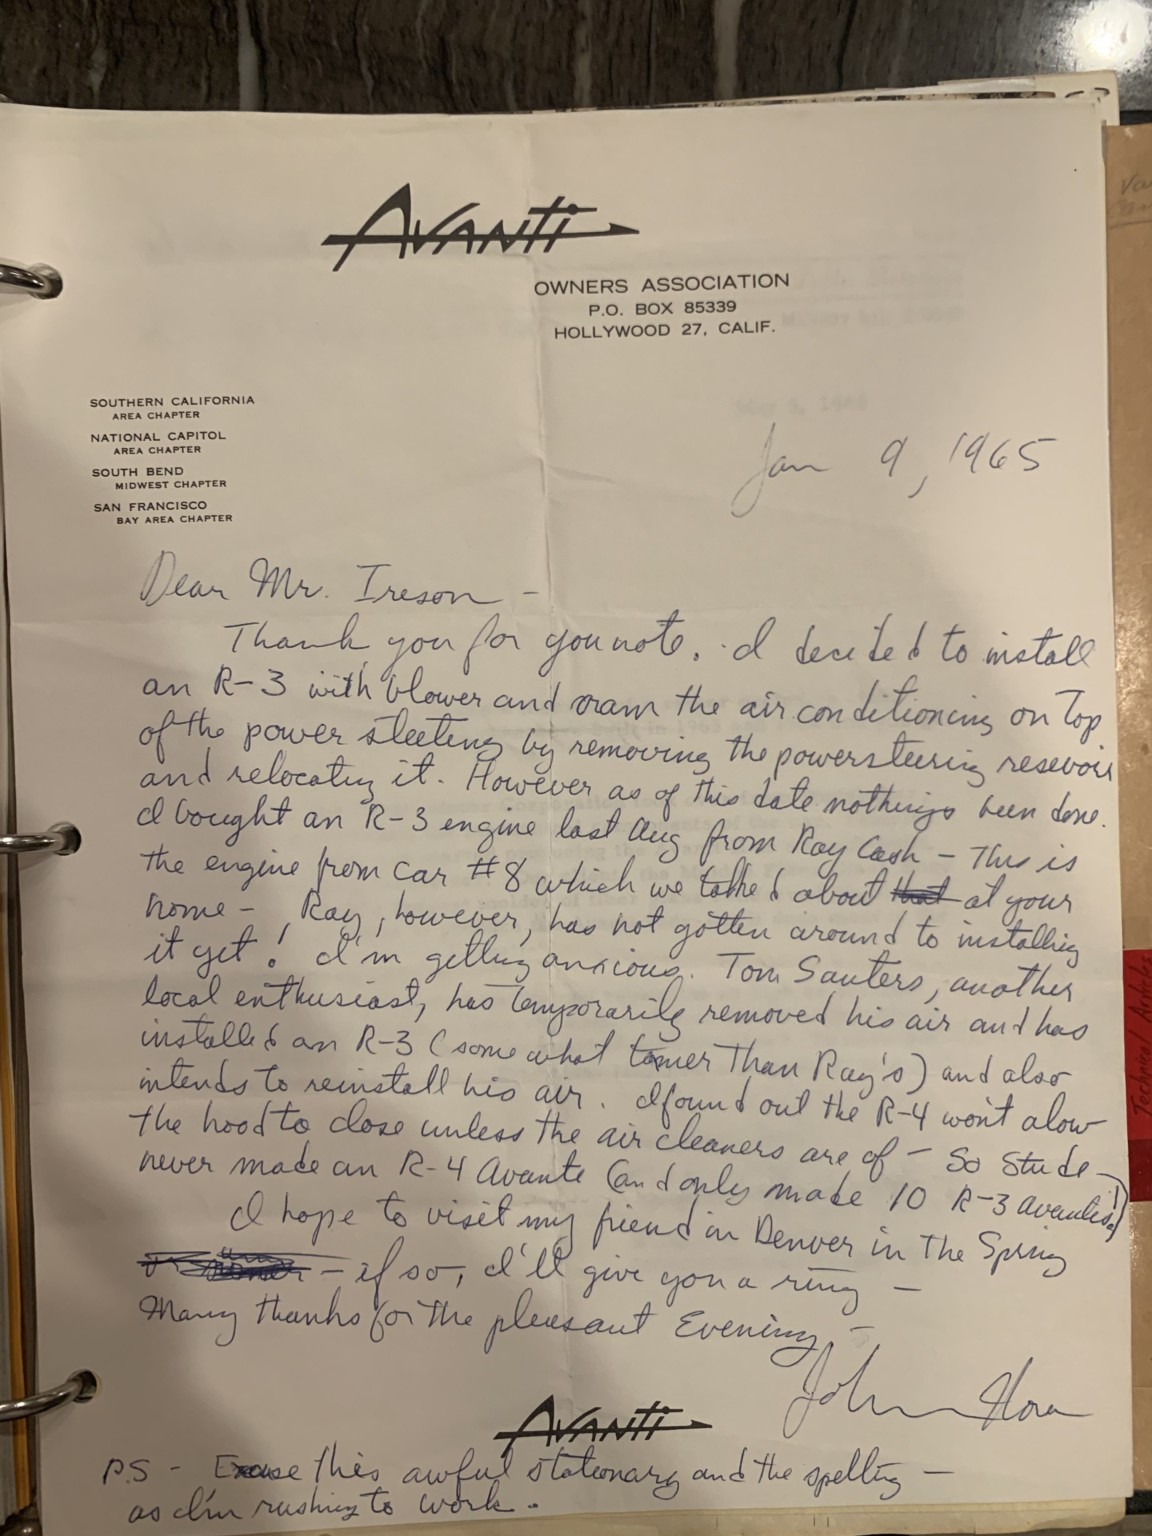 Avanti
OWNERS ASSOCIATION
P.O. BOX 85339
HOLLYWOOD 27, CALIF.
SOUTHERN CALIFORNIA
AREA CHAPTER
NATIONAL CAPITOL
AREA CHAPTER
SOUTH BEND
MIDWEST CHAPTER
SAN FRANCISCO
BAY AREA CHAPTER
Jan 9, 1965
Dear Mr. Ireson -
Thank you for you note. I decided to install
an R-3 with blower and cram the air conditioning on top
of the power steeting by removing the powersteering resevoir
and relocating it. However as of this date nothings been done.
I bought an R-3 engine last Aug from Ray Cash - This is
the engine from car #8 which we talked about that at your
home - Ray, however, has not gotten around to installing
it yet! I'm getting anxious. Tom Sauters, another
local enthusiast, has temporarily removed his air and has
installed an R-3 (somewhat tamer than Ray's) and also
intends to reinstall his air. I found out the R-4 won't alow
the hood to close unless the air cleaners are of - So Stude
never made an R-4 Avante (and only made 10 R-3 avanties!)
I hope to visit my friend in Denver in the Spring
- if so, I'll give you a ring -
Many thanks for the pleasant Evening -
John Hora
Avanti
P.S - Excuse this awful stationary and the spelling -
as I'm rushing to work.
Technical Articles